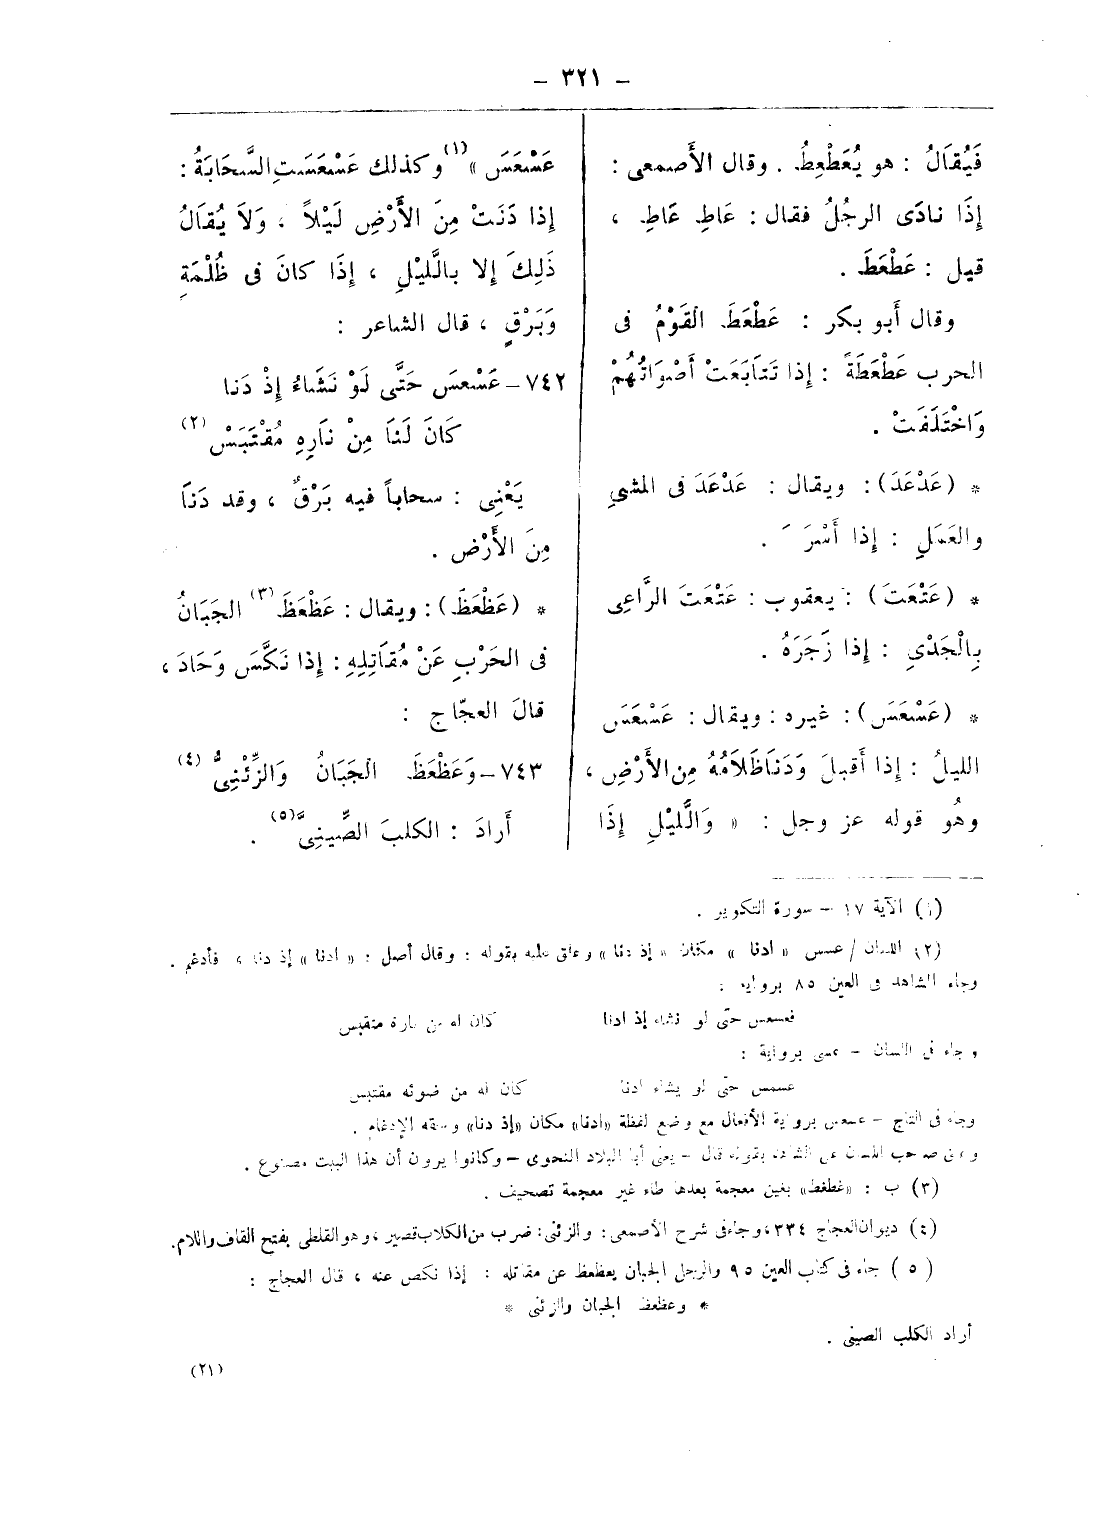 – ٣٢١ –
فَيُقَالُ : هو يُعَطْعِطُ . وقال الأَصمعى :
إِذَا نادَى الرجُلُ فقال : عَاطِ عَاطِ ،
قيل : عَطْعَطَ .
وقال أَبو بكر : عَطْعَطَ القَوْمُ فى
الحرب عَطْعَطَةً : إِذا تَتَابَعَتْ أَصْوَاتُهُمْ
وَاخْتَلَفَتْ .
* (عَدْعَدَ) : ويقال : عَدْعَدَ فى المشىِ
والعَمَلِ : إِذا أَسْرَ َ .
* (عَتْعَتَ) : يعقوب : عَتْعَتَ الرَّاعِى
بِالْجَدْىِ : إِذا زَجَرَهُ .
* (عَسْعَسَ) : غيره : ويقال : عَسْعَسَ
الليلُ : إِذا أَقبلَ وَدَنَا ظَلَامُهُ مِن الأَرْضِ ،
وهُو قوله عز وجل : « وَالَّليْلِ إِذَا
عَسْعَسَ »(١) وكذلك عَسْعَسَتِ السَّحَابَةُ :
إِذا دَنَتْ مِنَ الأَرْضِ لَيْلاً ، وَلَا يُقَالُ
ذَلِكَ إِلا بالَّليْلِ ، إِذَا كانَ فى ظُلْمَةٍ
وَبَرْقٍ ، قال الشاعر :
٧٤٢ – عَسْعسَ حَتَّى لَوْ نَشَاءُ إِذْ دَنا
كَانَ لَنَا مِنْ نَارِهِ مُقْتَبَسْ (٢)
يَعْنِى : سحاباً فيه بَرْقٌ ، وقد دَنَا
مِنَ الأَرْض .
* (عَظْعَظَ) : ويقال : عَظْعَظَ (٣) الجَبَانُ
فى الحَرْبِ عَنْ مُقَاتِلِهِ : إِذا نَكَّسَ وَحَادَ ،
قالَ العجّاج :
٧٤٣ – وَعَظْعَظَ الجَبَانُ وَالزِّئْنِىُّ (٤)
أَرادَ : الكلبَ الصِّينِىَّ (٥) .
(١) الآية ١٧ – سورة التكوير .
(٢) اللسان / عسس « ادنا » مكان « إذ دنا » وعلق عليه بقوله : وقال أصل : « ادنا » إذ دنا ، فأدغم .
وجاء الشاهد فى العين ٨٥ برواية :
فعسعس حتّى لو نشاء إذ ادنا كان له من ناره مقتبس
وجاء فى اللسان – عسس برواية :
عسعس حتّى لو يشاء ادنا كان له من ضوئه مقتبس
وجاء فى التاج – عسعس برواية الأفعال مع وضع لفظة «ادنا» مكان «إذ دنا» وسقه الإدغام .
وعلق صاحب اللسان على الشاهد بقوله قال – يعنى أبا البلاد النحوى – وكانوا يرون أن هذا البيت مصنوع .
(٣) ب : «غطغط» بغين معجمة بعدها طاء غير معجمة تصحيف .
(٤) ديوان العجاج ٣٣٤ ، وجاء فى شرح الأصمعى : والزئنى : ضرب من الكلاب قصير ، وهو القلطى بفتح القاف واللام .
(٥) جاء فى كتاب العين ٩٥ والرجل الجبان يعظعظ عن مقاتله : إذا نكص عنه ، قال العجاج :
* وعظعظ الجبان والزئنى *
أراد الكلب الصينى .
(٢١)